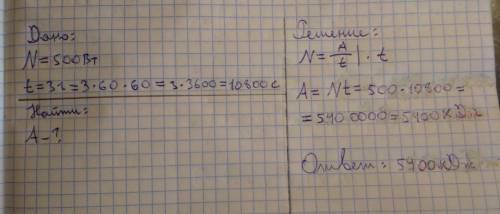 Дано:
N = 500Вт
t = 3ч = 3·60·60 = 3·3600 = 10800 с
Найти:
A - ?
Решение:
N = A/t | · t
A = Nt = 500·10800 =
= 5400000 = 5400 кДж
Ответ: 5400кДж